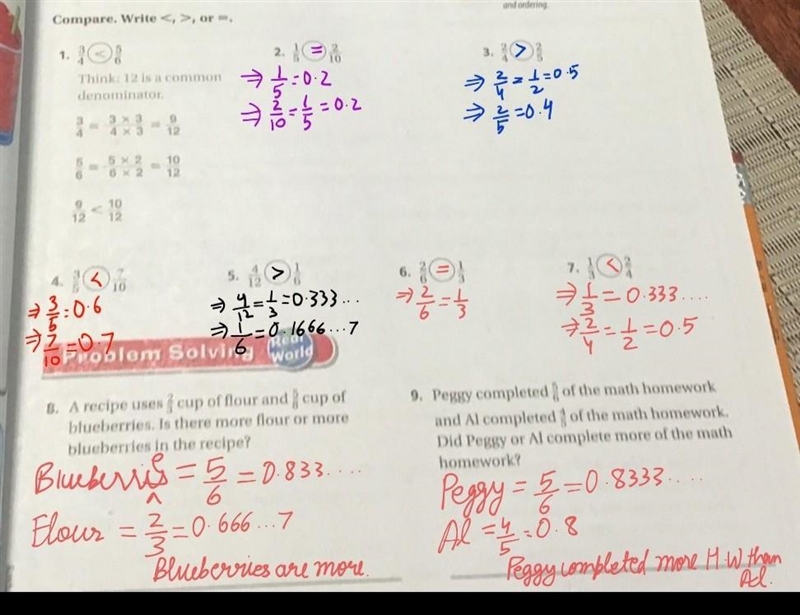 and ordering.
Compare. Write <, >, or =.
1. 3/4 < 5/6
Think: 12 is a common
denominator.
3/4 = 3 × 3 / 4 × 3 = 9/12
5/6 = 5 × 2 / 6 × 2 = 10/12
9/12 < 10/12
2. 1/5 = 2/10
⇒ 1/5 = 0.2
⇒ 2/10 = 1/5 = 0.2
3. 2/4 > 2/5
⇒ 2/4 = 1/2 = 0.5
⇒ 2/5 = 0.4
4. 3/5 < 7/10
⇒ 3/5 = 0.6
⇒ 7/10 = 0.7
5. 4/12 > 1/6
⇒ 4/12 = 1/3 = 0.333...
⇒ 1/6 = 0.1666...7
6. 2/6 = 1/3
⇒ 2/6 = 1/3
7. 1/3 < 2/4
⇒ 1/3 = 0.333....
⇒ 2/4 = 1/2 = 0.5
Problem Solving Real World
8. A recipe uses 2/3 cup of flour and 5/6 cup of
blueberries. Is there more flour or more
blueberries in the recipe?
Blueberries = 5/6 = 0.833....
Flour = 2/3 = 0.666...7
Blueberries are more.
9. Peggy completed 5/6 of the math homework
and Al completed 4/5 of the math homework.
Did Peggy or Al complete more of the math
homework?
Peggy = 5/6 = 0.8333....
Al = 4/5 = 0.8
Peggy completed more H.W than
Al.